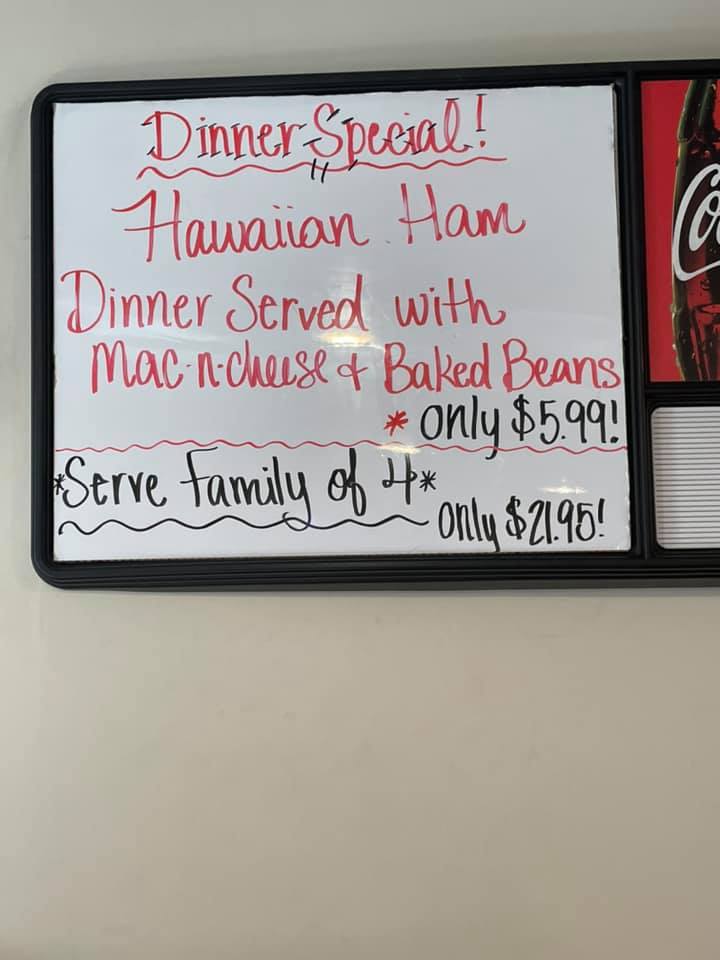 Dinner Special!
Hawaiian Ham
Dinner Served with
Mac-n-cheese & Baked Beans
* only $5.99!
*Serve Family of 4*
only $21.95!